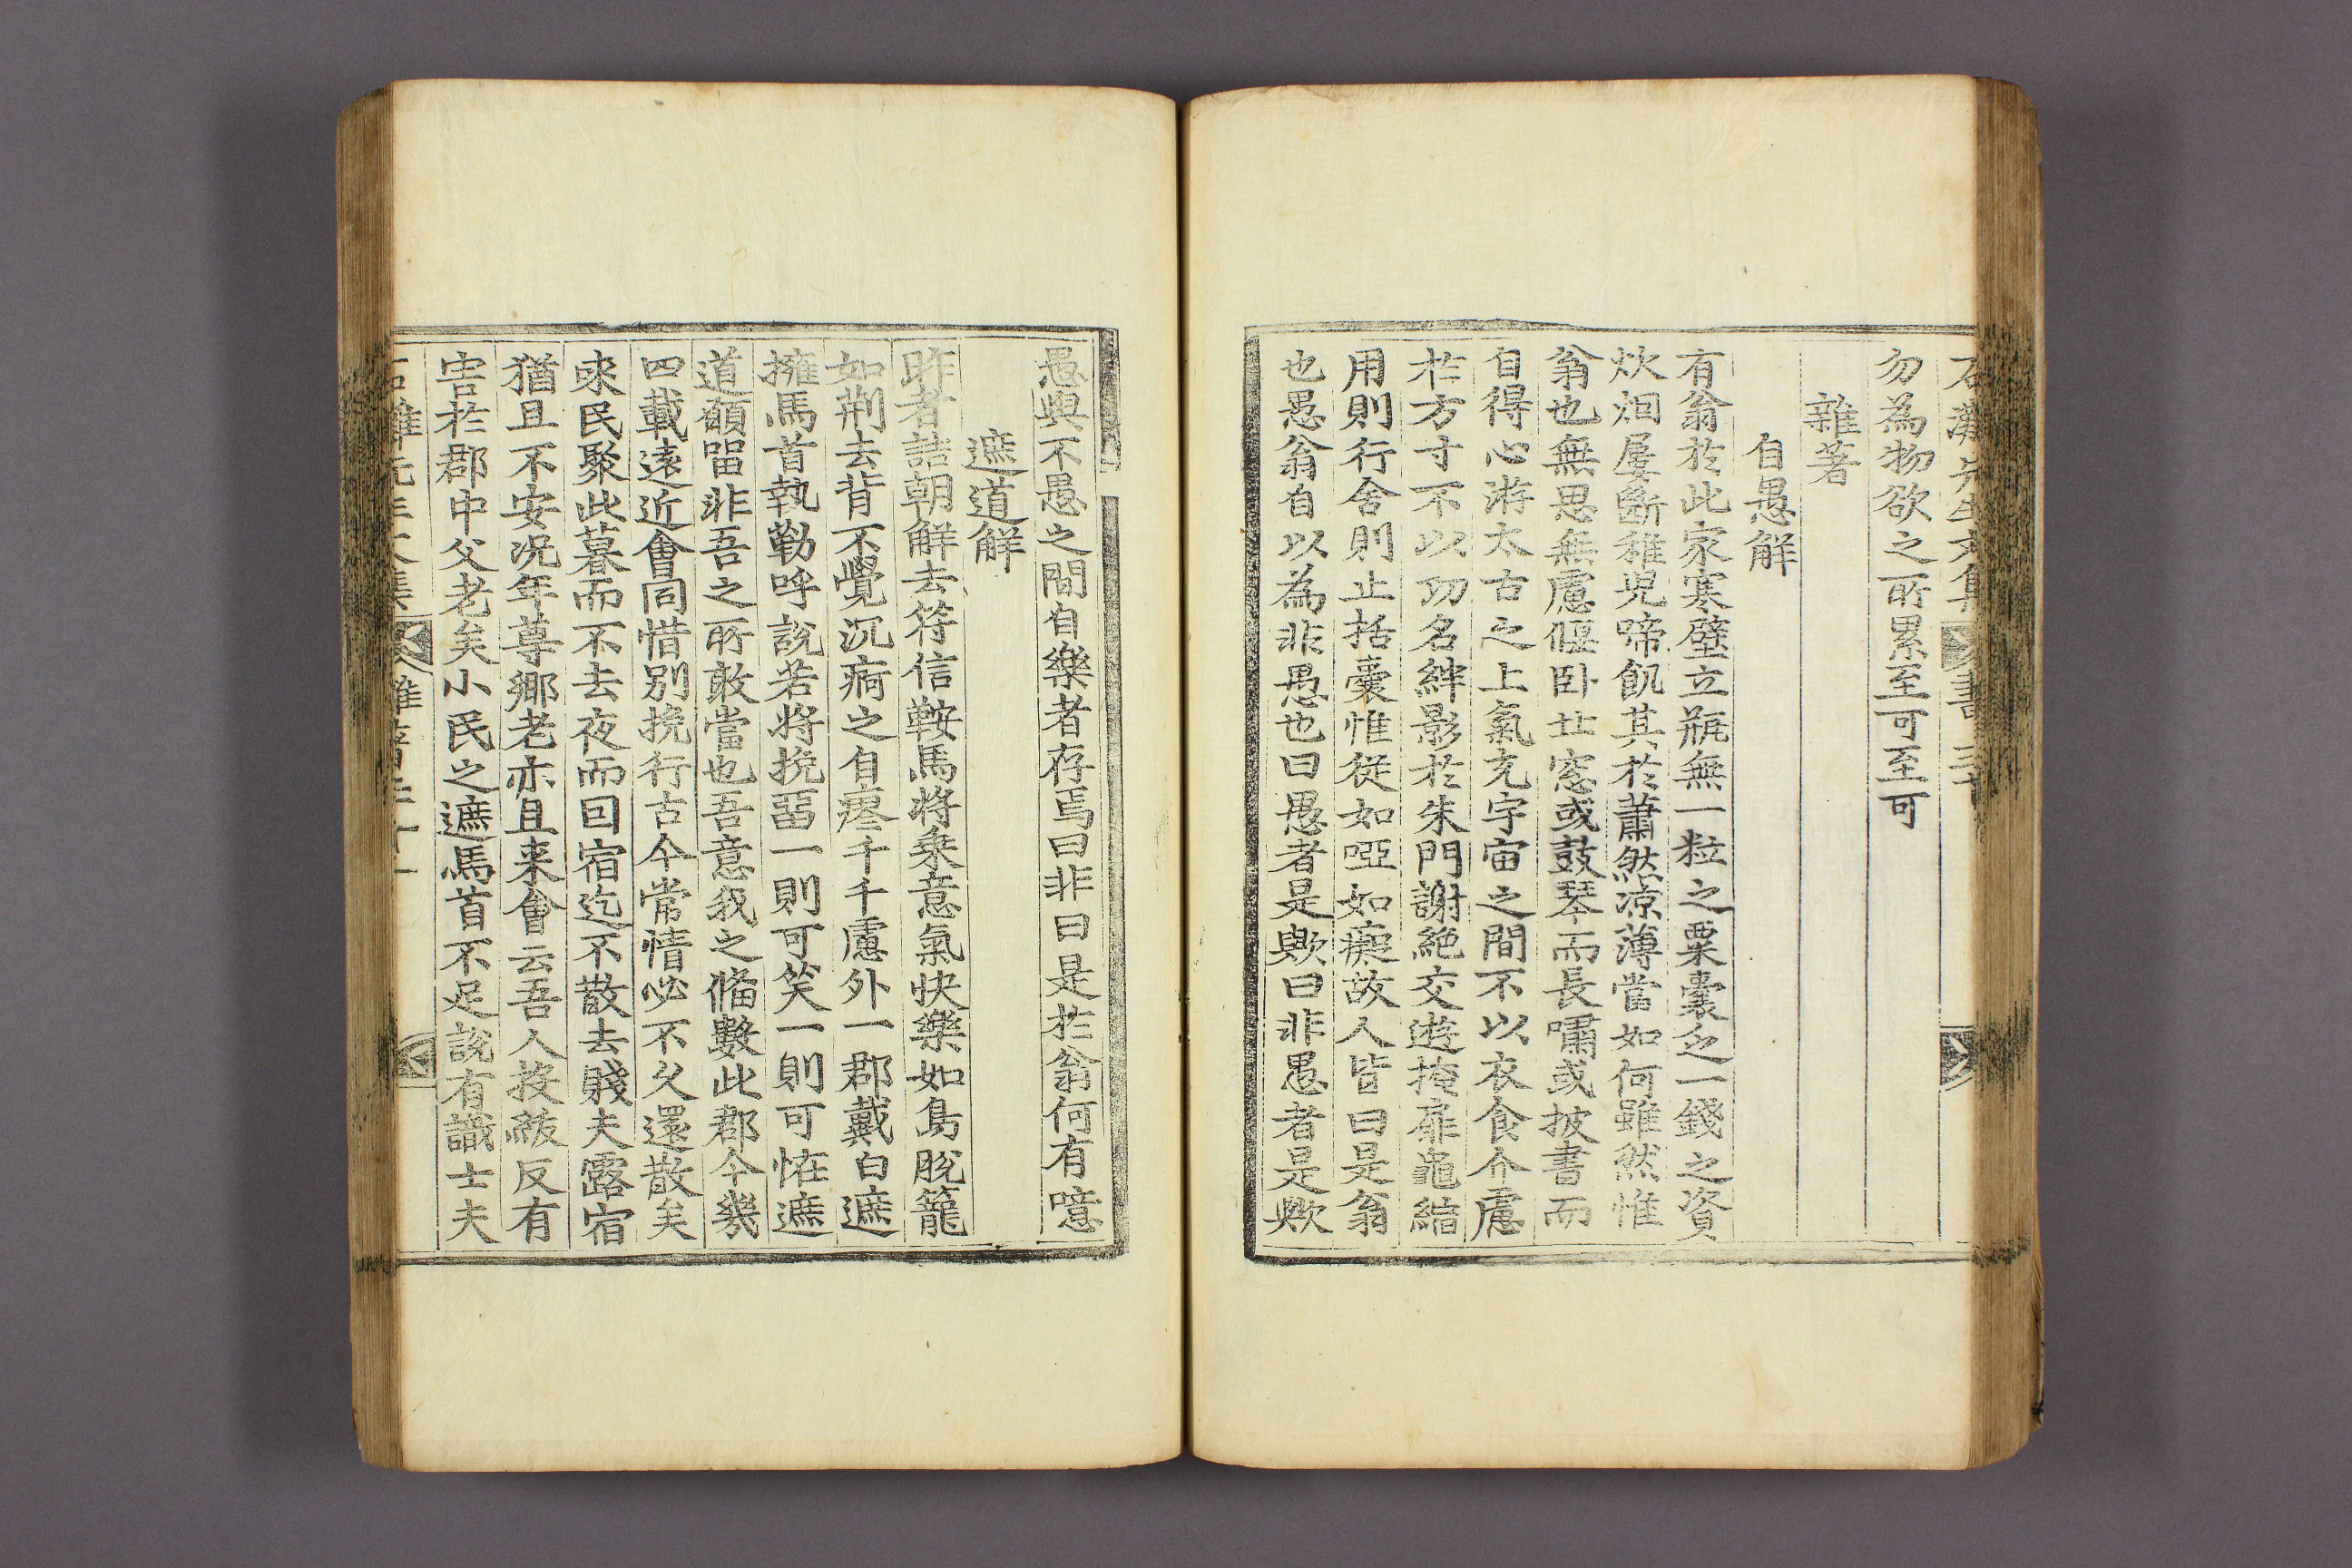 勿為物欲之所累至可至可
雜著
自愚解
有翁於此家寒壁立瓶無一粒之粟囊乏一錢之資
炊烟屢斷稚兒啼飢其於蕭然凉薄當如何雖然惟
翁也無思無慮偃卧北窓或鼓琴而長嘯或披書而
自得心游太古之上氣充宇宙之間不以衣食介慮
於方寸不以功名絆影於朱門謝絶交遊掩扉龜縮
用則行舍則止括囊惟從如啞如癡故人皆曰是翁
也愚翁自以為非愚也曰愚者是歟曰非愚者是歟
愚與不愚之間自樂者存焉曰非曰是於翁何有噫
遮道解
昨者詰朝解去符信鞍馬將乗意氣快樂如鳥脫籠
如荆去背不覺沉痾之自瘳千千慮外一郡戴白遮
擁馬首執勒呼說若將挽畱一則可笑一則可恠遮
道願留非吾之所敢當也吾意我之偹數此郡今幾
四載遠近會同惜别挽行古今常情必不久還散矣
求民聚此暮而不去夜而回宿迄不散去賤夫露宿
猶且不安况年尊鄉老亦且来會云吾人投紱反有
害於郡中父老矣小民之遮馬首不足說有識士夫